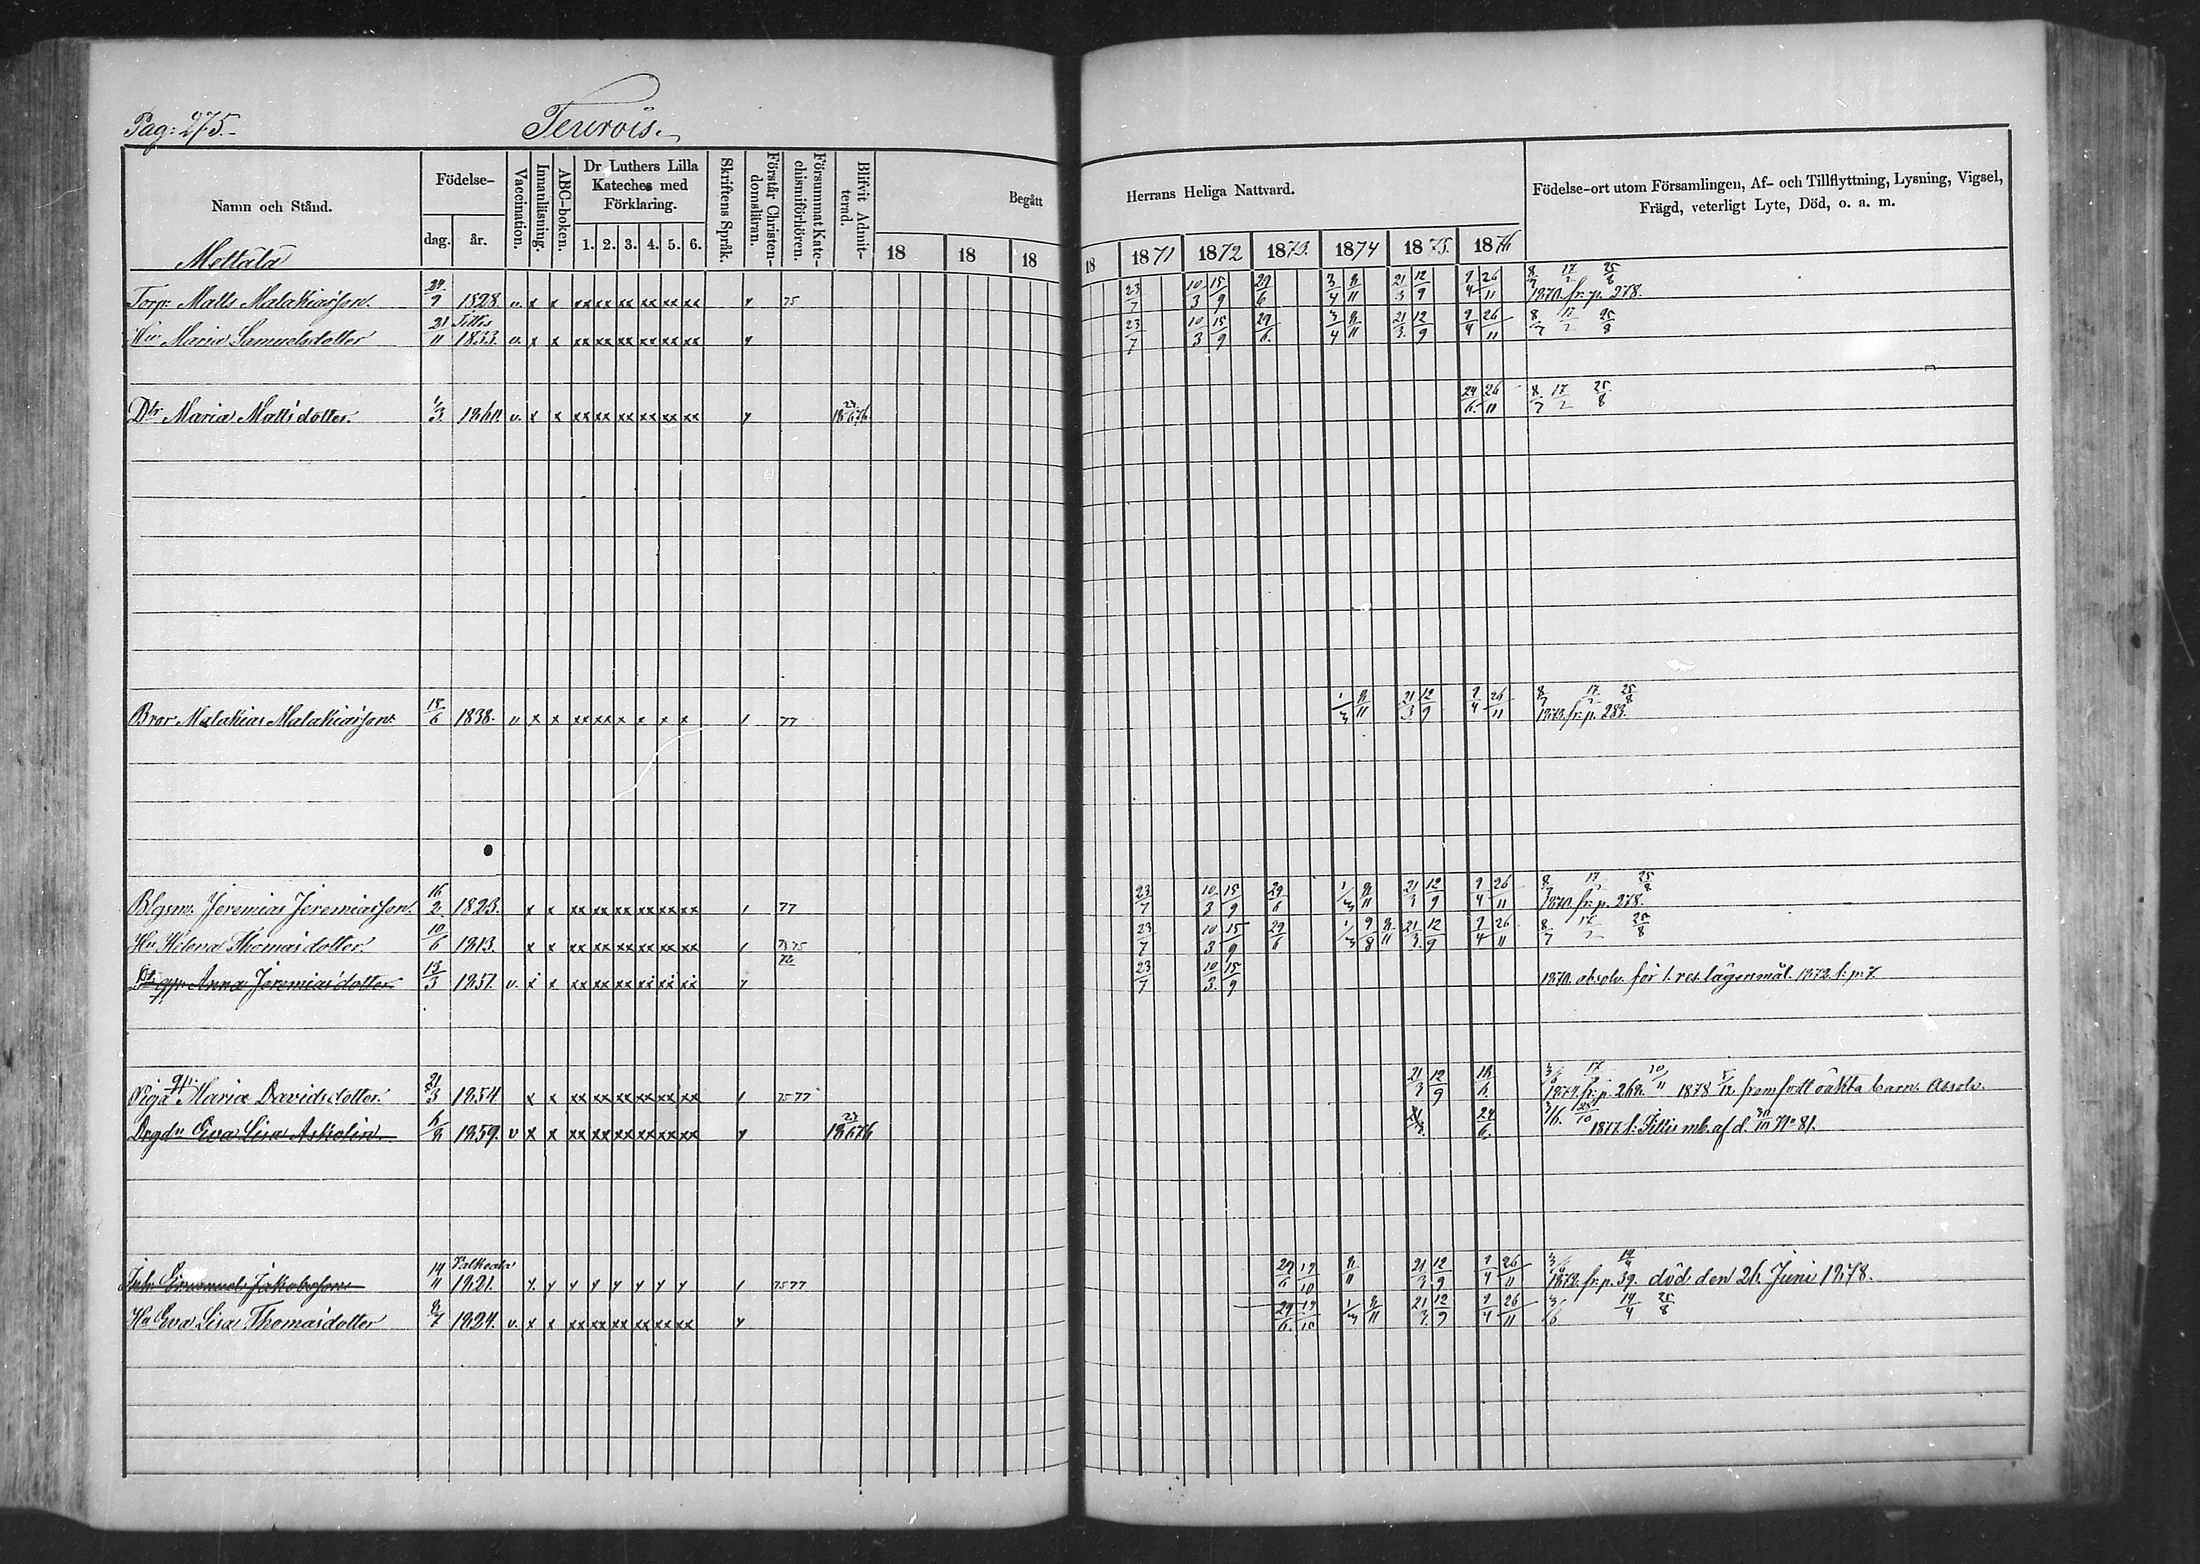 Pag: 275.
Teurois.
Namn och Stånd.
Födelse-
dag. år.
Vaccination.
Innanläsning.
ABC-boken.
Dr Luthers Lilla Kateches med Förklaring.
1. 2. 3. 4. 5. 6.
Skriftens Språk.
Förstår Christendomsläran.
Försummat Katechismiförhören.
Blifvit Admitterad.
Begått Herrans Heliga Nattvard.
18 18 18 18 1871 1872 1873. 1874 1875. 1876
Födelse-ort utom Församlingen, Af- och Tillflyttning, Lysning, Vigsel,
Frägd, veterligt Lyte, Död, o. a. m.
Mettälä
Torp. Matts Malakias'son. 1828. v. x x xx xx xx xx xx xx y 75 23/7 10/3 15/9 29/6 3/4 8/11 21/3 12/9 9/4 26/11 8/7 17/2 25/8
1870. fr. p. 278.
Tillis
Hu Maria Samuelsdotter 21/11 1833. v. x x xx xx xx xx xx xx y 23/7 10/3 15/9 29/6. 3/4 8/11 21/3. 12/9 9/4 26/11 8/7 17/2 25/8
Dtr Maria Matts'dotter. 1/3. 1860. v. x x xx xx xx xx xx xx y 24/6. 26/11 8/7 17/2 25/8
Bror Malakias Malakias'son 18/6 1838. v x x xx xx x x x x 1 77 1/3 8/11 21/3 12/9 9/4 26/11 8/7 17/2 25/8
1873. fr. p. 283.
Jeremias Jeremias'son. 16/2. 1823. x x xx xx xx xx xx xx 1 77 23/7 10/3 15/9 29/6 1/3 8/11 21/3 12/9 9/4 26/11 8/7 17/2 25/8
1870. fr. p. 278.
Hu Helena Thomas'dotter. 10/6 1813. x x xx xx xx xx xx xx 1 75 23/7 10/3 15/9 29/6 1/3 9/8 8/11 21/3. 12/9 9/4 26/11 8/7 17/2 25/8
72
Anna Jeremias'dotter 13/3 1851. v. x x y 23/7 10/3. 15/9 1870. absolv. för 1. res. lägersmål. 1872. t. p. 7
Piga Maria Davidsdotter. 21/3 1854 x x xx xx xx xx xx xx 1 75 77 21/3 12/9
1874. fr. p. 262. 1878 framfödt oäkta barn. Absolv.
Eva Lisa Askolin 1859. v x x xx xx xx xx xx xx y 24/6.
1877. t. Tillis mb. af d. 30/10 No 81.
Valkeala
Emanuel Jakobsson 14/11 1821. y. y y y y y y y y 1 75 77 29/6 19/10 8/11 21/3 12/9 9/4 26/11 3/6 14/4
1872. fr. p. 39. död den 26. Juni 1878.
Hu Eva Lisa Thomas'dotter 8/7 1824. v. x x xx xx xx xx xx xx y 29/6. 19/10 1/3 8/11 21/3. 12/9 9/4 26/11 3/6 14/4 25/8